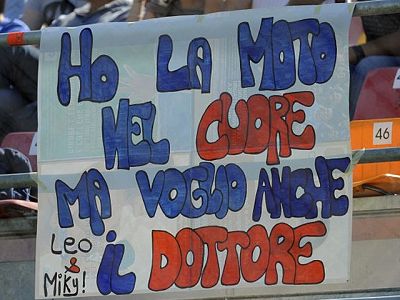 HO LA MOTO
NEL CUORE
MA VOGLIO ANCHE
IL DOTTORE
Leo
&
Miky!
46